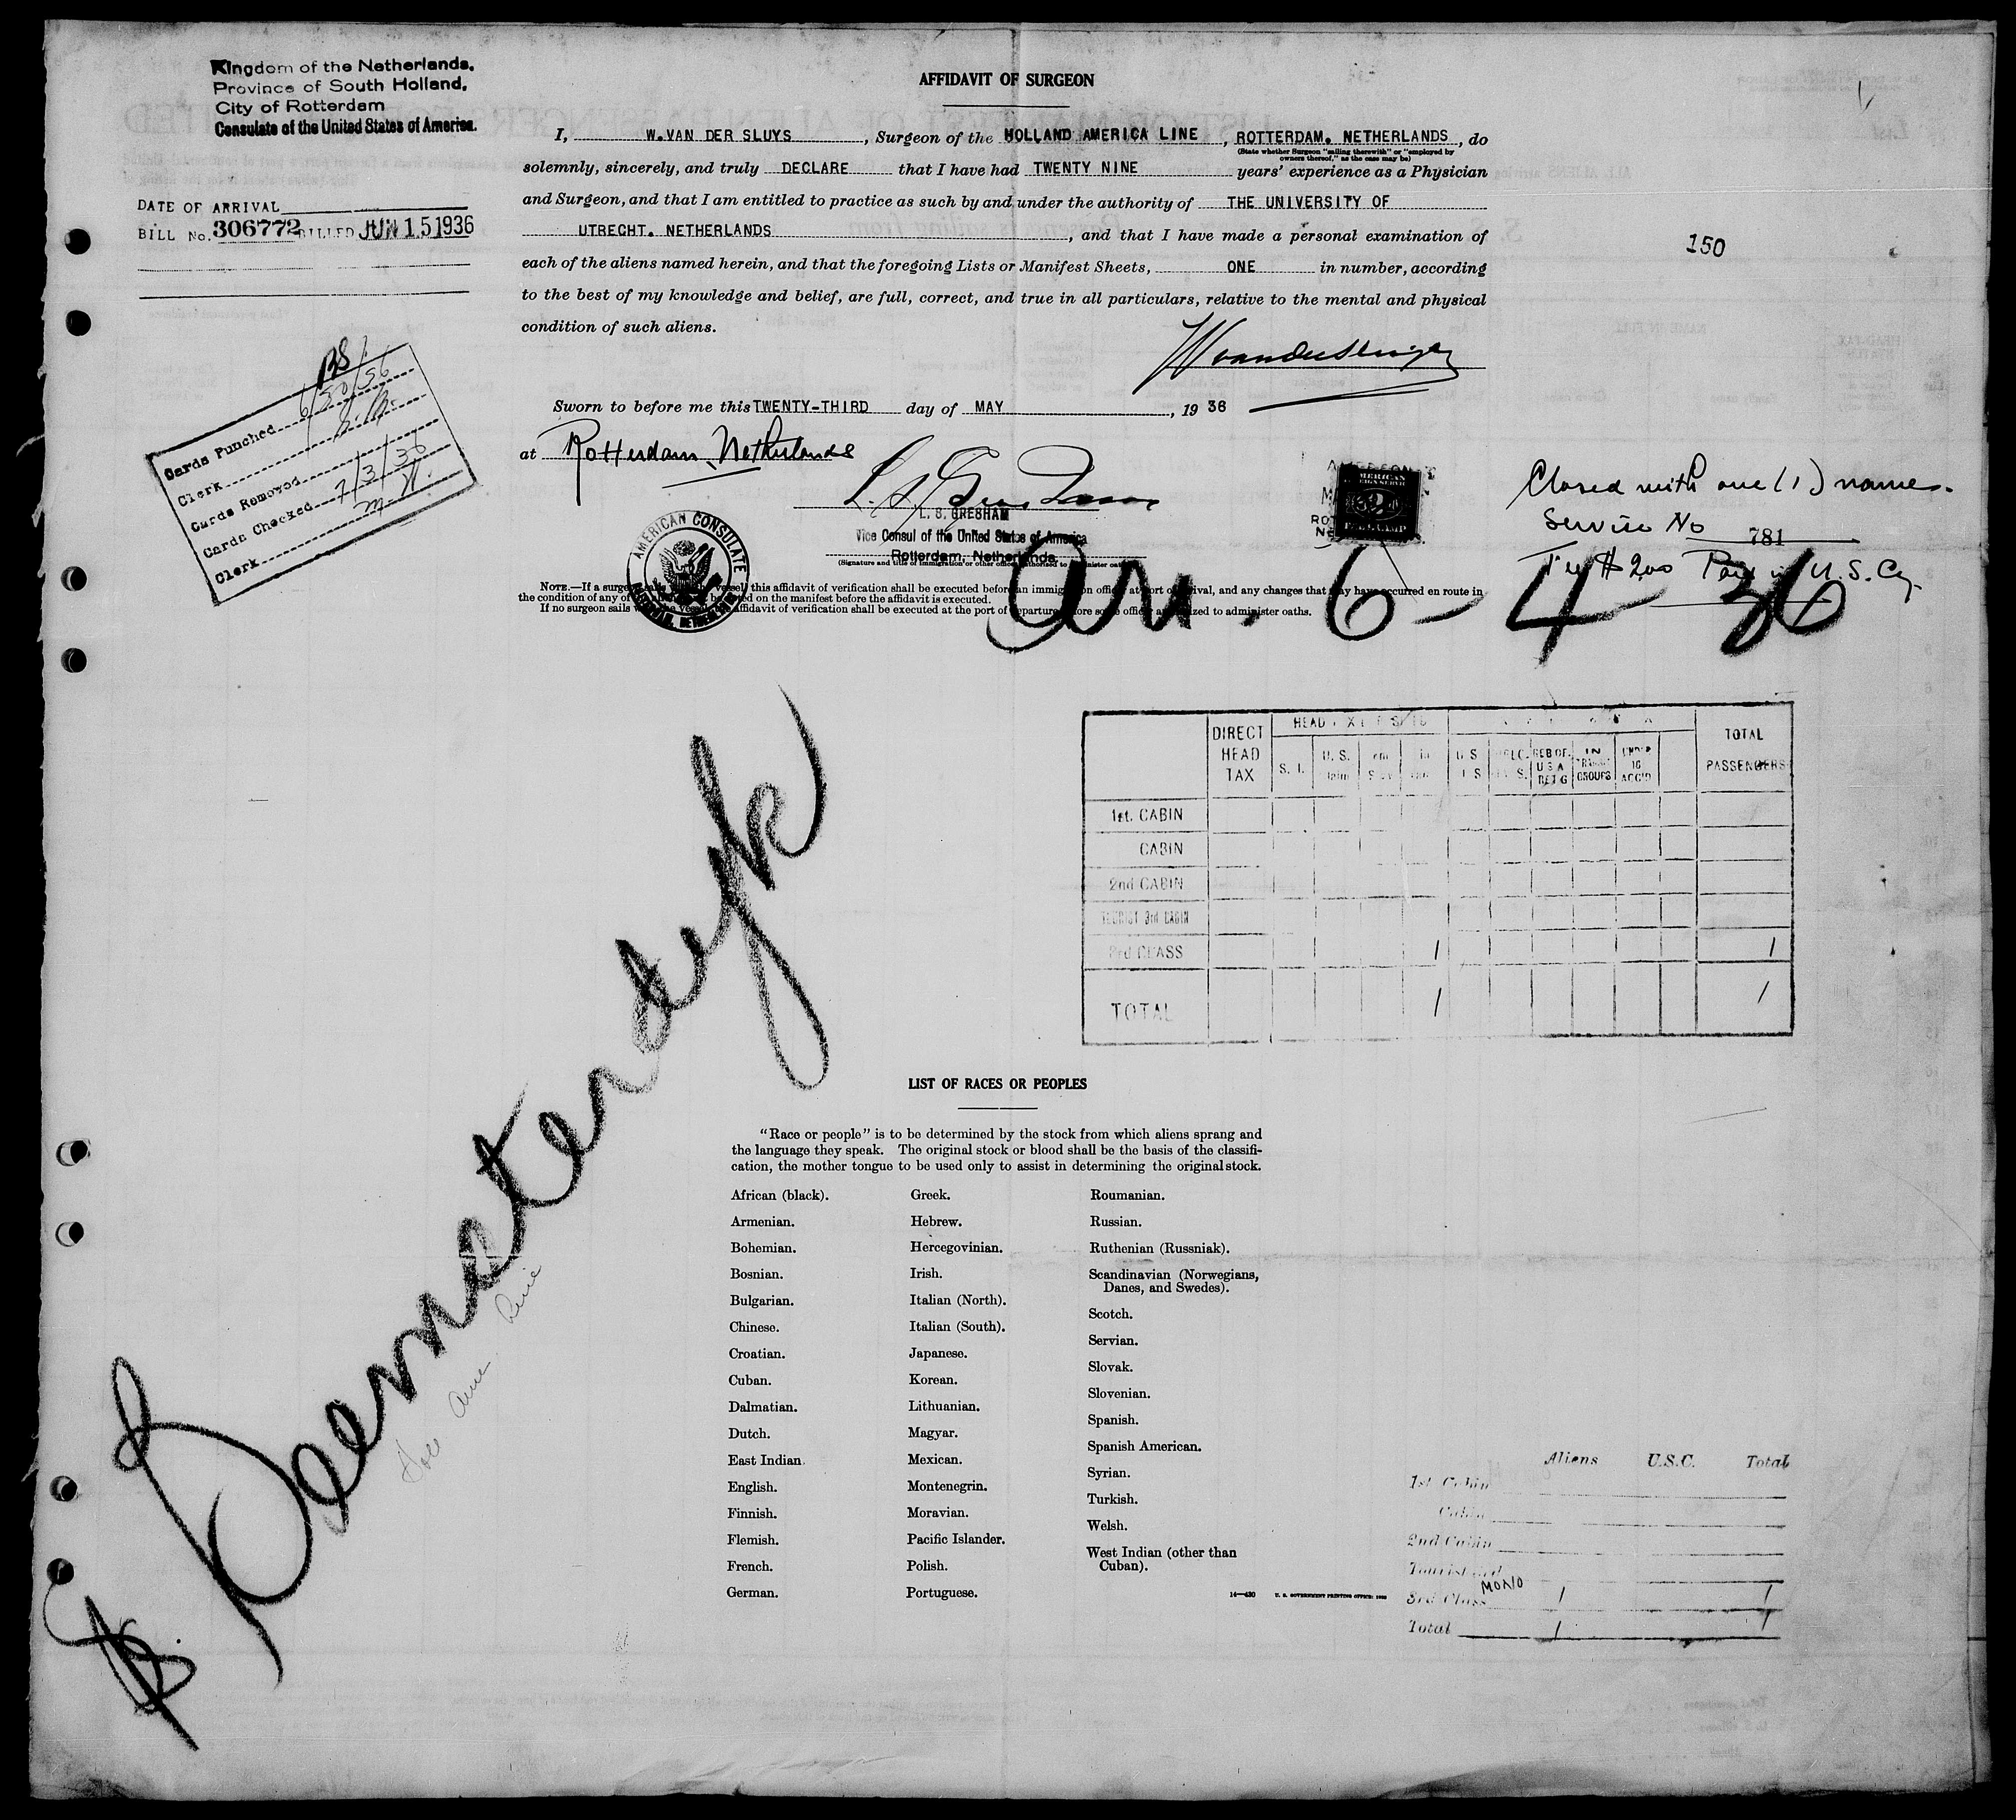 Kingdom of the Netherlands.
Province of South Holland,
City of Rotterdam
Consulate of the United States of America.
DATE OF ARRIVAL
BILL No. 306772 BILLED JUN 15 1936
AFFIDAVIT OF SURGEON
I, W. VAN DER SLUYS, Surgeon of the HOLLAND AMERICA LINE, ROTTERDAM. NETHERLANDS, do
(State whether Surgeon "sailing therewith" or "employed by
owners thereof," as the case may be)
solemnly, sincerely, and truly DECLARE that I have had TWENTY NINE years' experience as a Physician
and Surgeon, and that I am entitled to practice as such by and under the authority of THE UNIVERSITY OF
UTRECHT. NETHERLANDS, and that I have made a personal examination of
each of the aliens named herein, and that the foregoing Lists or Manifest Sheets, ONE in number, according
to the best of my knowledge and belief, are full, correct, and true in all particulars, relative to the mental and physical
condition of such aliens.
150
Sworn to before me this TWENTY-THIRD day of MAY, 19 36
at Rotterdam, Netherlands
L. S. GRESHAM
Vice Consul of the United States of America
Rotterdam, Netherlands.
AMERICAN CONSULATE
Cards Punched
Clerk
Cards Removed
Cards Checked 7/3/36
Clerk M. H.
Closed with one (1) name.
Service No 781
Fee $2.00
U.S. Cy.
NOTE.—If a surgeon sails with the vessel, this affidavit of verification shall be executed before an immigration officer at port of arrival, and any changes that may have occurred en route in
the condition of any of
on the manifest before the affidavit is executed.
If no surgeon sails with the vessel, affidavit of verification shall be executed at the port of departure before some officer authorized to administer oaths.
Arr. 6-4-36
DIRECT HEAD TAX
HEAD
S. I.
U. S.
TOTAL PASSENGERS
1st. CABIN
CABIN
2nd CABIN
TOURIST 3rd CABIN
3rd CLASS 1 1
TOTAL 1 1
Beemsterdyk
LIST OF RACES OR PEOPLES
"Race or people" is to be determined by the stock from which aliens sprang and
the language they speak. The original stock or blood shall be the basis of the classifi-
cation, the mother tongue to be used only to assist in determining the original stock.
African (black).
Armenian.
Bohemian.
Bosnian.
Bulgarian.
Chinese.
Croatian.
Cuban.
Dalmatian.
Dutch.
East Indian.
English.
Finnish.
Flemish.
French.
German.
Greek.
Hebrew.
Hercegovinian.
Irish.
Italian (North).
Italian (South).
Japanese.
Korean.
Lithuanian.
Magyar.
Mexican.
Montenegrin.
Moravian.
Pacific Islander.
Polish.
Portuguese.
Roumanian.
Russian.
Ruthenian (Russniak).
Scandinavian (Norwegians,
Danes, and Swedes).
Scotch.
Servian.
Slovak.
Slovenian.
Spanish.
Spanish American.
Syrian.
Turkish.
Welsh.
West Indian (other than
Cuban).
14—430 U. S. GOVERNMENT PRINTING OFFICE:
Aliens U.S.C. Total
1st Cabin
Cabin
2nd Cabin
Tourist 3rd
MONO
3rd Class 1 1
Total 1 1